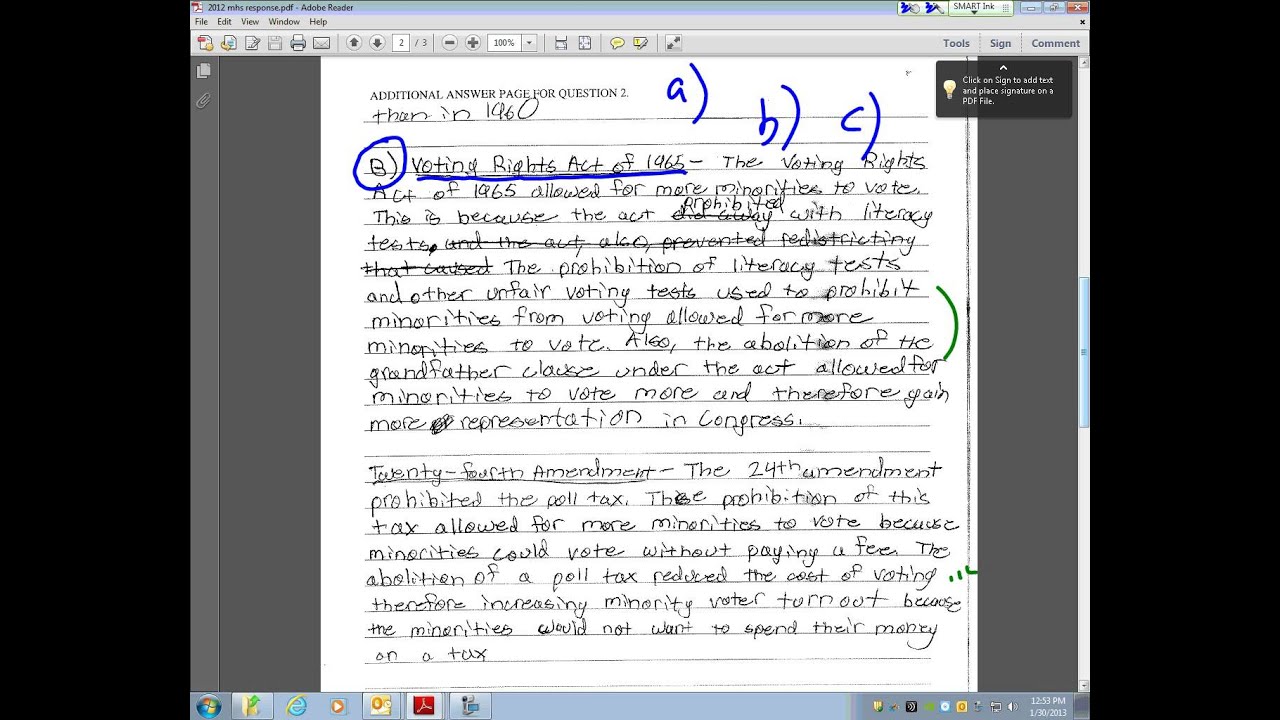 2012 mhs response.pdf - Adobe Reader
SMART Ink
File Edit View Window Help
2 / 3 100% Tools Sign Comment
Click on Sign to add text
and place signature on a
PDF File.
a) b) c)
ADDITIONAL ANSWER PAGE FOR QUESTION 2.
than in 1960
B) Voting Rights Act of 1965 - The Voting Rights
Act of 1965 allowed for more minorities to vote.
prohibited
This is because the act did away with literacy
tests. and the act, also, prevented redistricting
that caused The prohibition of literacy tests
and other unfair voting tests used to prohibit
minorities from voting allowed for more
minorities to vote. Also, the abolition of the
grandfather clause under the act allowed for
minorities to vote more and therefore gain
more representation in Congress.
Twenty-fourth Amendment - The 24th amendment
prohibited the poll tax. The prohibition of this
tax allowed for more minorities to vote because
minorities could vote without paying a fee. The
abolition of a poll tax reduced the cost of voting
therefore increasing minority voter turnout because
the minorities would not want to spend their money
on a tax
12:53 PM
1/30/2013